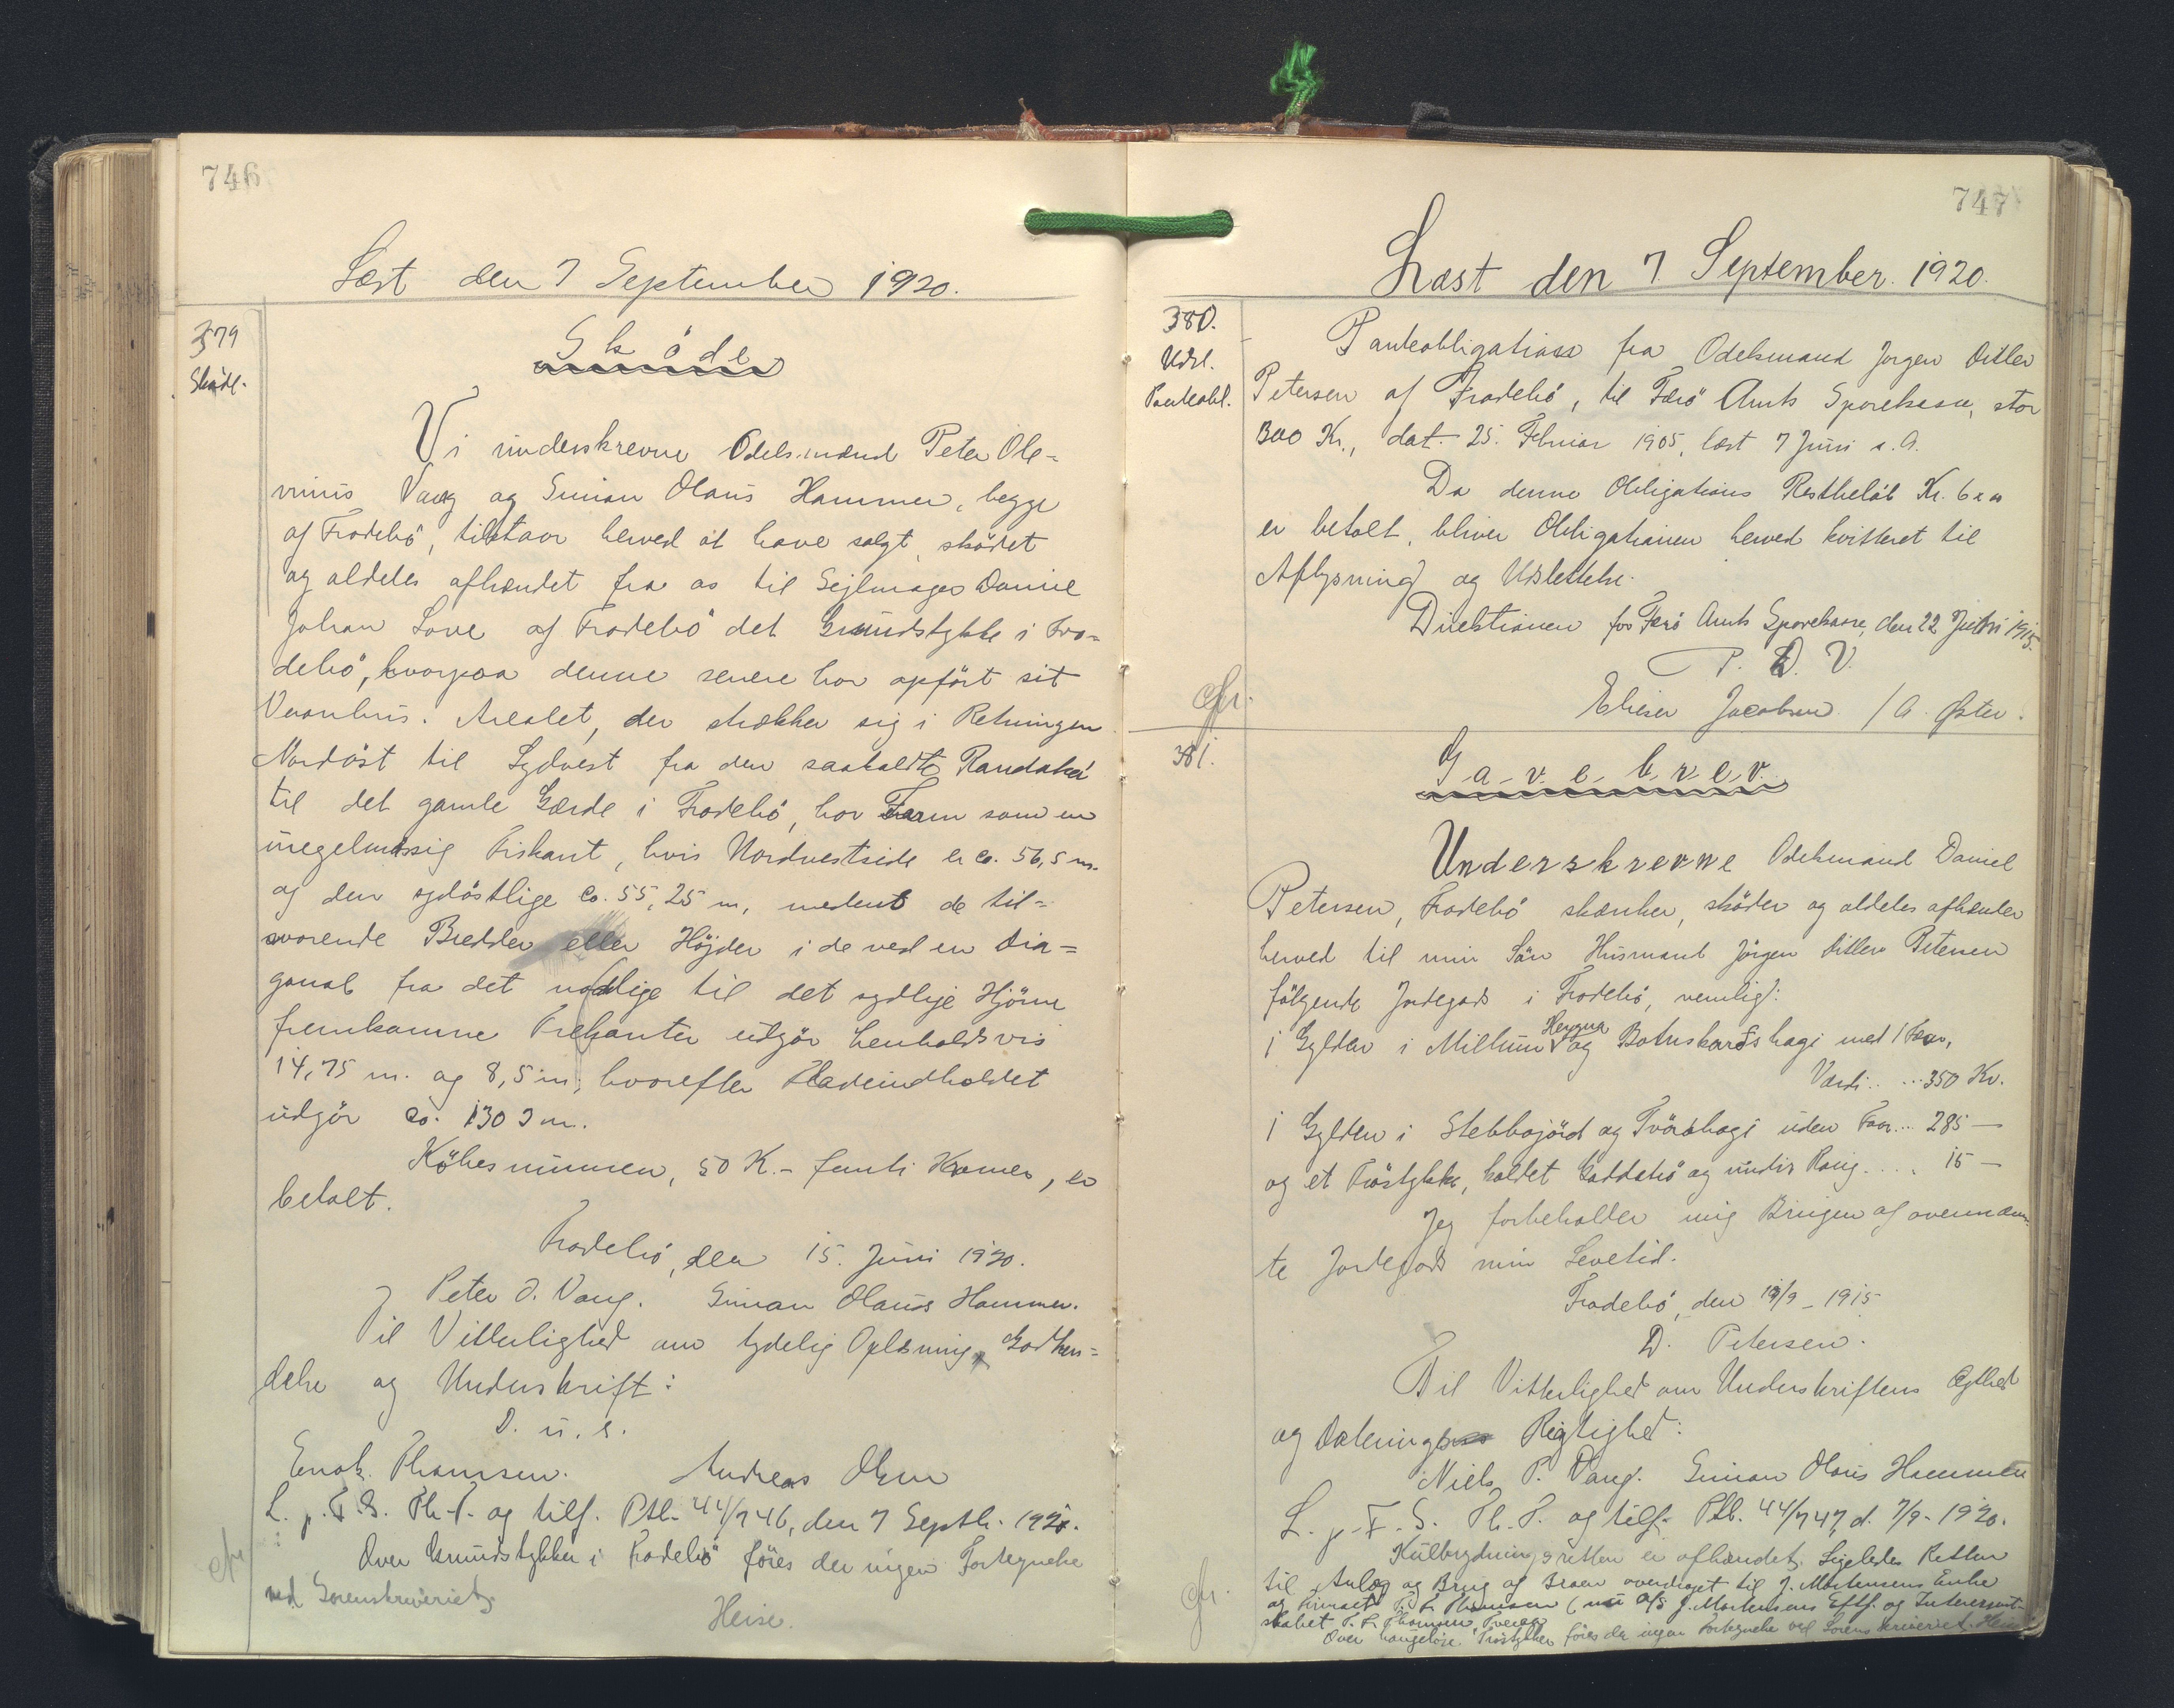 746
Læst den 7 September 1920.
379
Sköde.
Sköde
Vi underskrevne Odelsmænd Peter Ole=
vinus Vang og Simon Olaus Hammer, begge
af Frodebö, tilstaar herved at have solgt, sködet
og aldeles afhændet fra os til Sejlmager Daniel
Johan Love af Frodebö det Grundstykke i Fro=
debö, hvorpaa denne senere har opfört sit
Vaanhus. Arealet, der strækker sig i Retningen
Nordöst til Sydvest fra den saakaldte
til det gamle Gærde i Frodebö, har Form som en
uregelmæssig Firkant, hvis Nordvestside er ca. 56,5 m.
og den sydöstlige ca. 55,25 m, medens de til=
svarende Bredder eller Höjder i de ved en Dia=
gonal fra det nordlige til det sydlige Hjörne
fremkomne Trekanter udgör henholdsvis
14,75 m. og 8,5 m, hvorefter Fladeindholdet
udgör ca. 130 m.
Köbesummen, 50 K. - femti Kroner, er
betalt.
Frodebö, den 15. Juni 1920.
Peter O. Vang. Simon Olaus Hammer.
Til Vitterlighed om tydelig Oplæsning, Godken=
delse og Underskrift:
D. u. s.
Enok Thomsen. Andreas Olsen
L. p. F. S. Th-T. og tilf. Ptb. 44/746, den 7 Septb. 1920.
Over Grundstykker i Frodebö föres der ingen Fortegnelse
ved Sorenskriveriet.
Heise.
747
Læst den 7 September. 1920.
380.
Udsl.
Panteobl.
Panteobligation fra Odelsmand Jorgen Ditlev
Petersen af Frodebö, til Færö Amts Sparekasse, stor
300 Kr., dat. 25. Februar 1905, læst 7 Juni s. A.
Da denne Obligations Restbelöb Kr.
er betalt, bliver Obligationen herved kvitteret til
Aflysning og Udslettelse.
Direktionen for Færö Amts Sparekasse, den 22 Juni 1915.
P. D. V.
Elieser Jacobsen / A. Öster.
381.
Gavebrev.
Underskrevne Odelsmand Daniel
Petersen, Frodebö skænker, sköder og aldeles afhænder
herved til min Sön Husmand Jörgen Ditlev Petersen
fölgende Jordegods i Frodebö, nemlig:
1 Gylden i Millum Heygna og Botnskardshagi med 1 Faar,
Værdi ... 350 Kr.
1 Gylden i Stebbajörd og Tvörahagi uden Faar ... 285 —
og et Tröstykke, kaldet Gaddabö og undir Roug .... 15 —
Jeg forbeholder mig Brugen af ovennævn-
te Jordegods min Levetid.
Frodebö, den 19/9 - 1915
D. Petersen.
Til Vitterlighed om Underskriftens Ægthed
og Daterings Rigtighed:
Niels P. Vang. Simon Olaus Hammer
L. p. F. S. Th. T. og tilf. Ptb. 44/747, d. 7/9 - 1920.
Kulbrydningsretten er afhændet. Ligeledes Retten
til Anlæg og Brug af Broen overdraget til J. Mortensens Enke
og Firmaet T. F. Thomsen (nu A/S J. Mortensens Eftf. og Interessent-
skabet T. F. Thomsen, Tveraa)
Over haugelöse Tröstykker föres der ingen Fortegnelse ved Sorenskriveriet. Heise